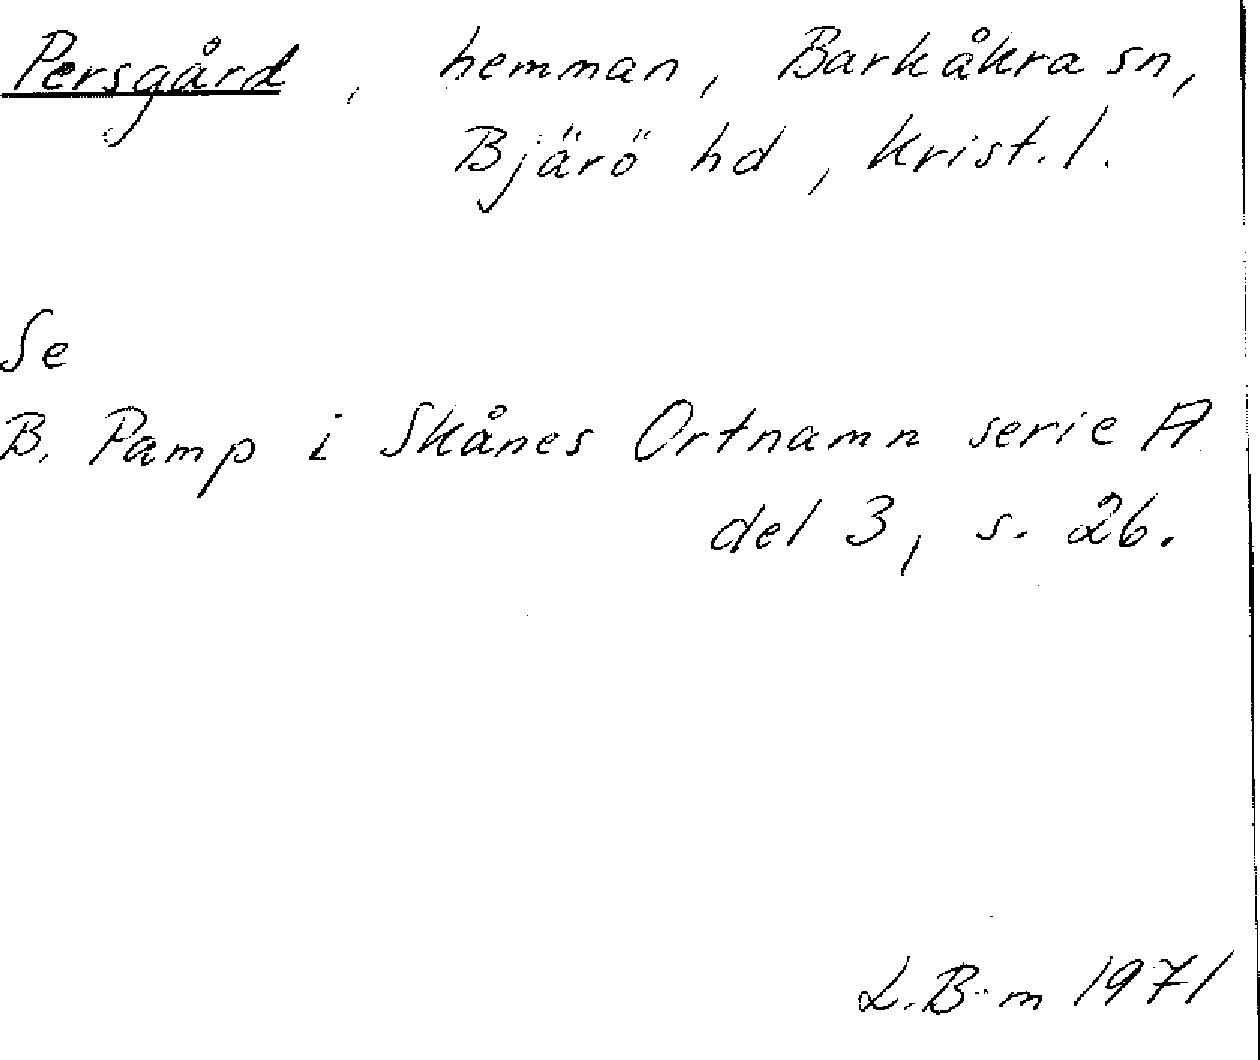 Persgård, hemman, Barkåkra sn,
Bjärö hd, Krist. l.
Se
B. Pamp i Skånes Ortnamn serie A
del 3, s. 26.
L.B-m 1971